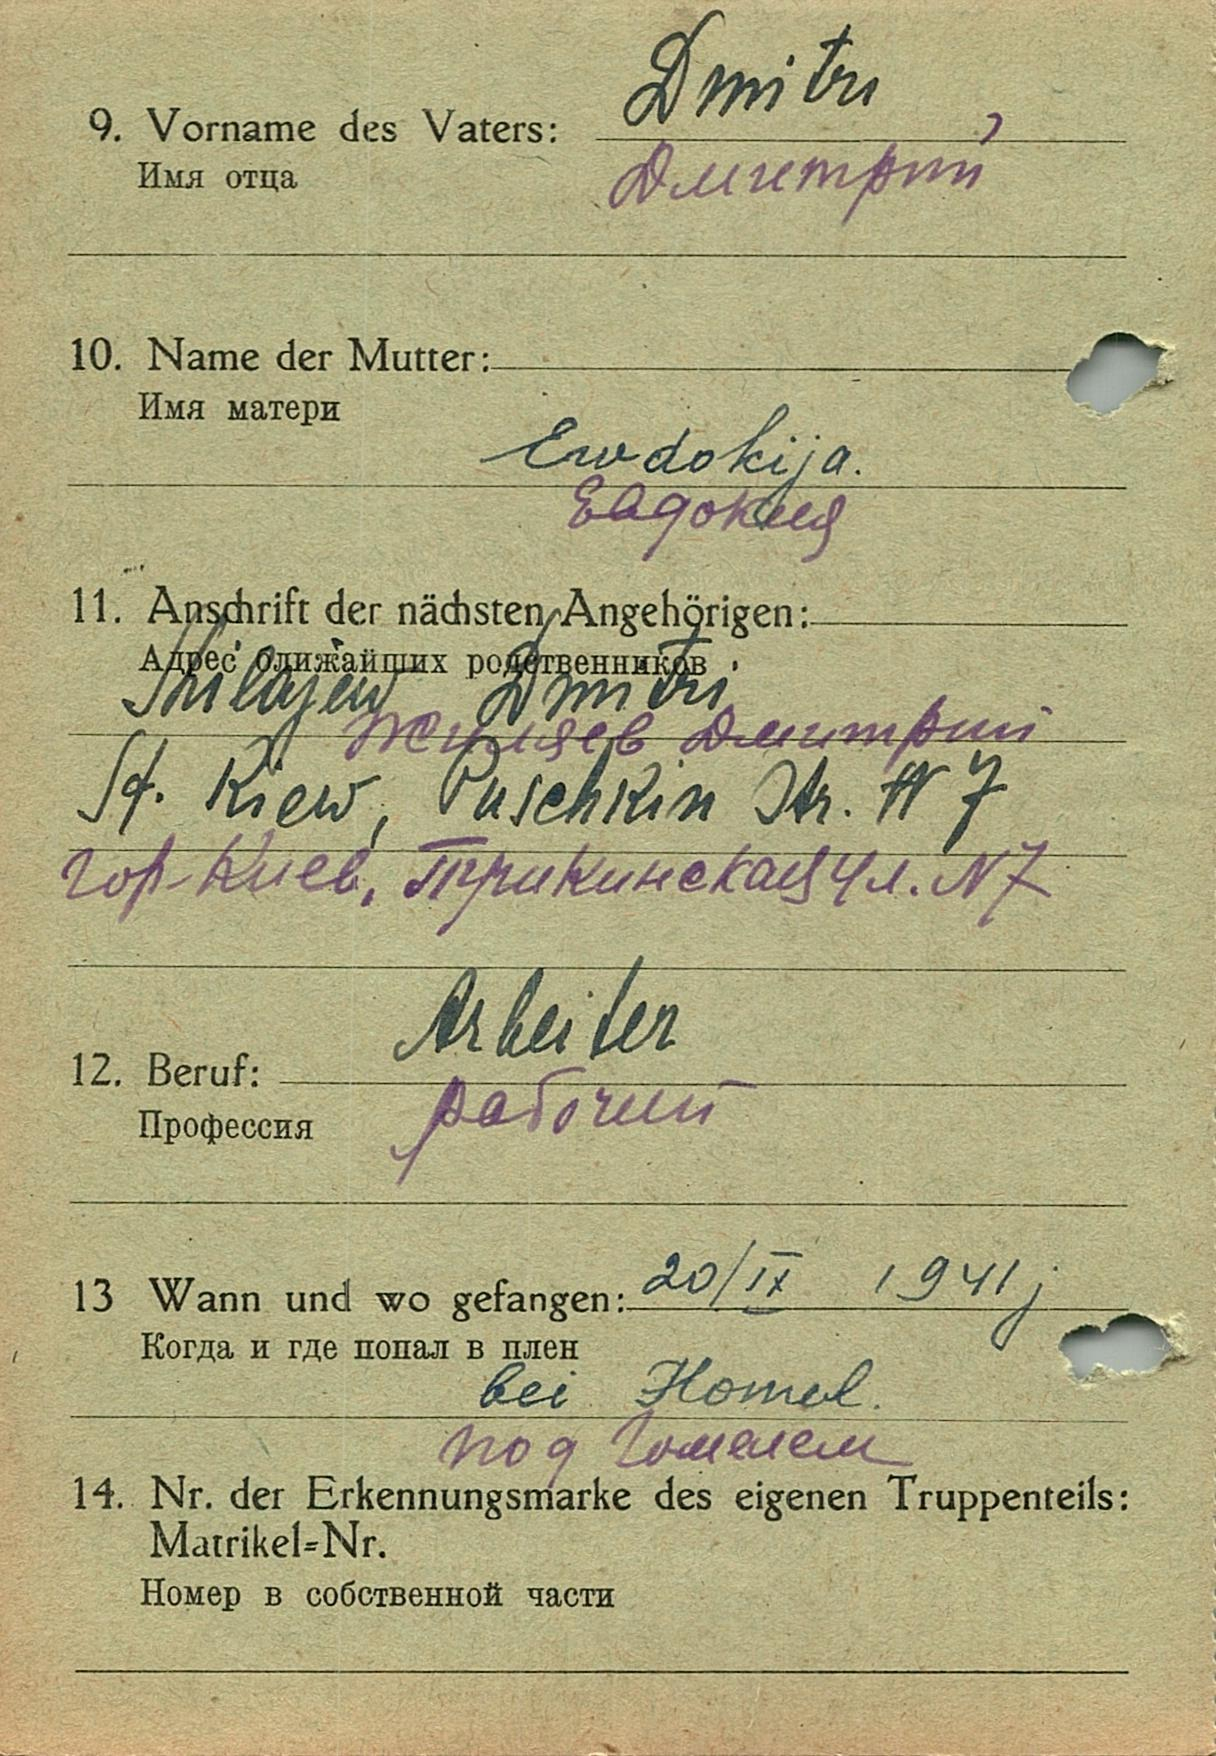 Dmitri
9. Vorname des Vaters:
Имя отца
Дмитрий
10. Name der Mutter:
Имя матери
Ewdokija.
Евдокия
11. Anschrift der nächsten Angehörigen:
Адрес ближайших родственников
Shilajew Dmitri
Жиляев Дмитрий
St. Kiew, Puschkin Str. N 7
гор. Киев, ул. N7
Arbeiter
12. Beruf:
рабочий
Профессия
13 Wann und wo gefangen: 20/IX 1941 j
Когда и где попал в плен
bei Homel.
под Гомелем
14. Nr. der Erkennungsmarke des eigenen Truppenteils:
Matrikel=Nr.
Номер в собственной части